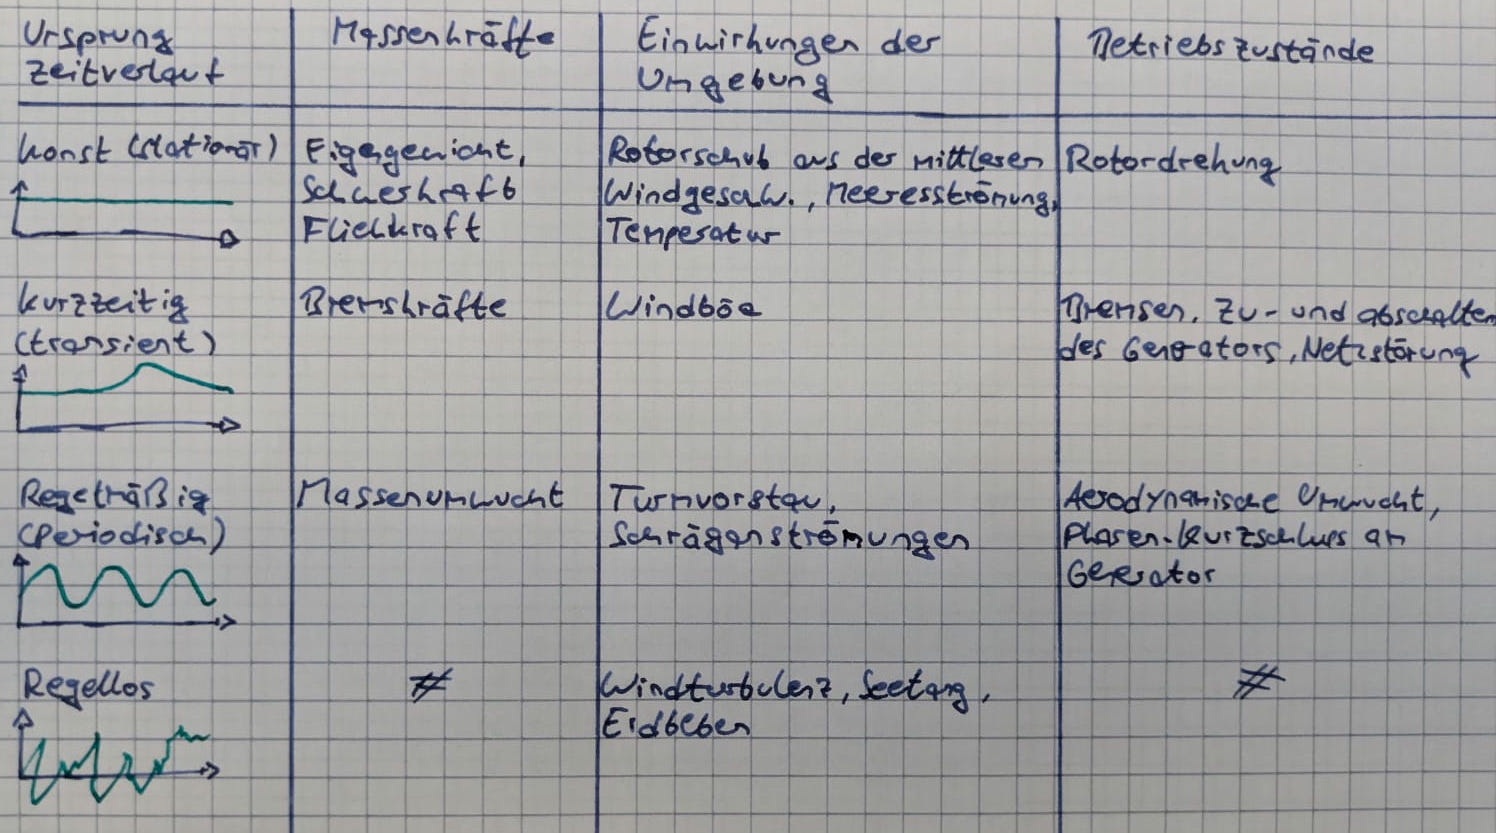 Ursprung
Zeitverlauf
Massenkräfte
Einwirkungen der
Umgebung
Betriebszustände
konst (stationär)
Eigengewicht,
Schwerkraft
Fliehkraft
Rotorschub aus der mittleren
Windgeschw., Meeresströmung,
Temperatur
Rotordrehung
kurzzeitig
(transient)
Bremskräfte
Windböe
Bremsen, Zu- und abschalten
des Generators, Netzstörung
Regelmäßig
(Periodisch)
Massenunwucht
Turmvorstau,
Schräganströmungen
Aerodynamische Unwucht,
Phasen-Kurzschluss am
Generator
Regellos
#
Windturbulenz, Seetang,
Erdbeben
#